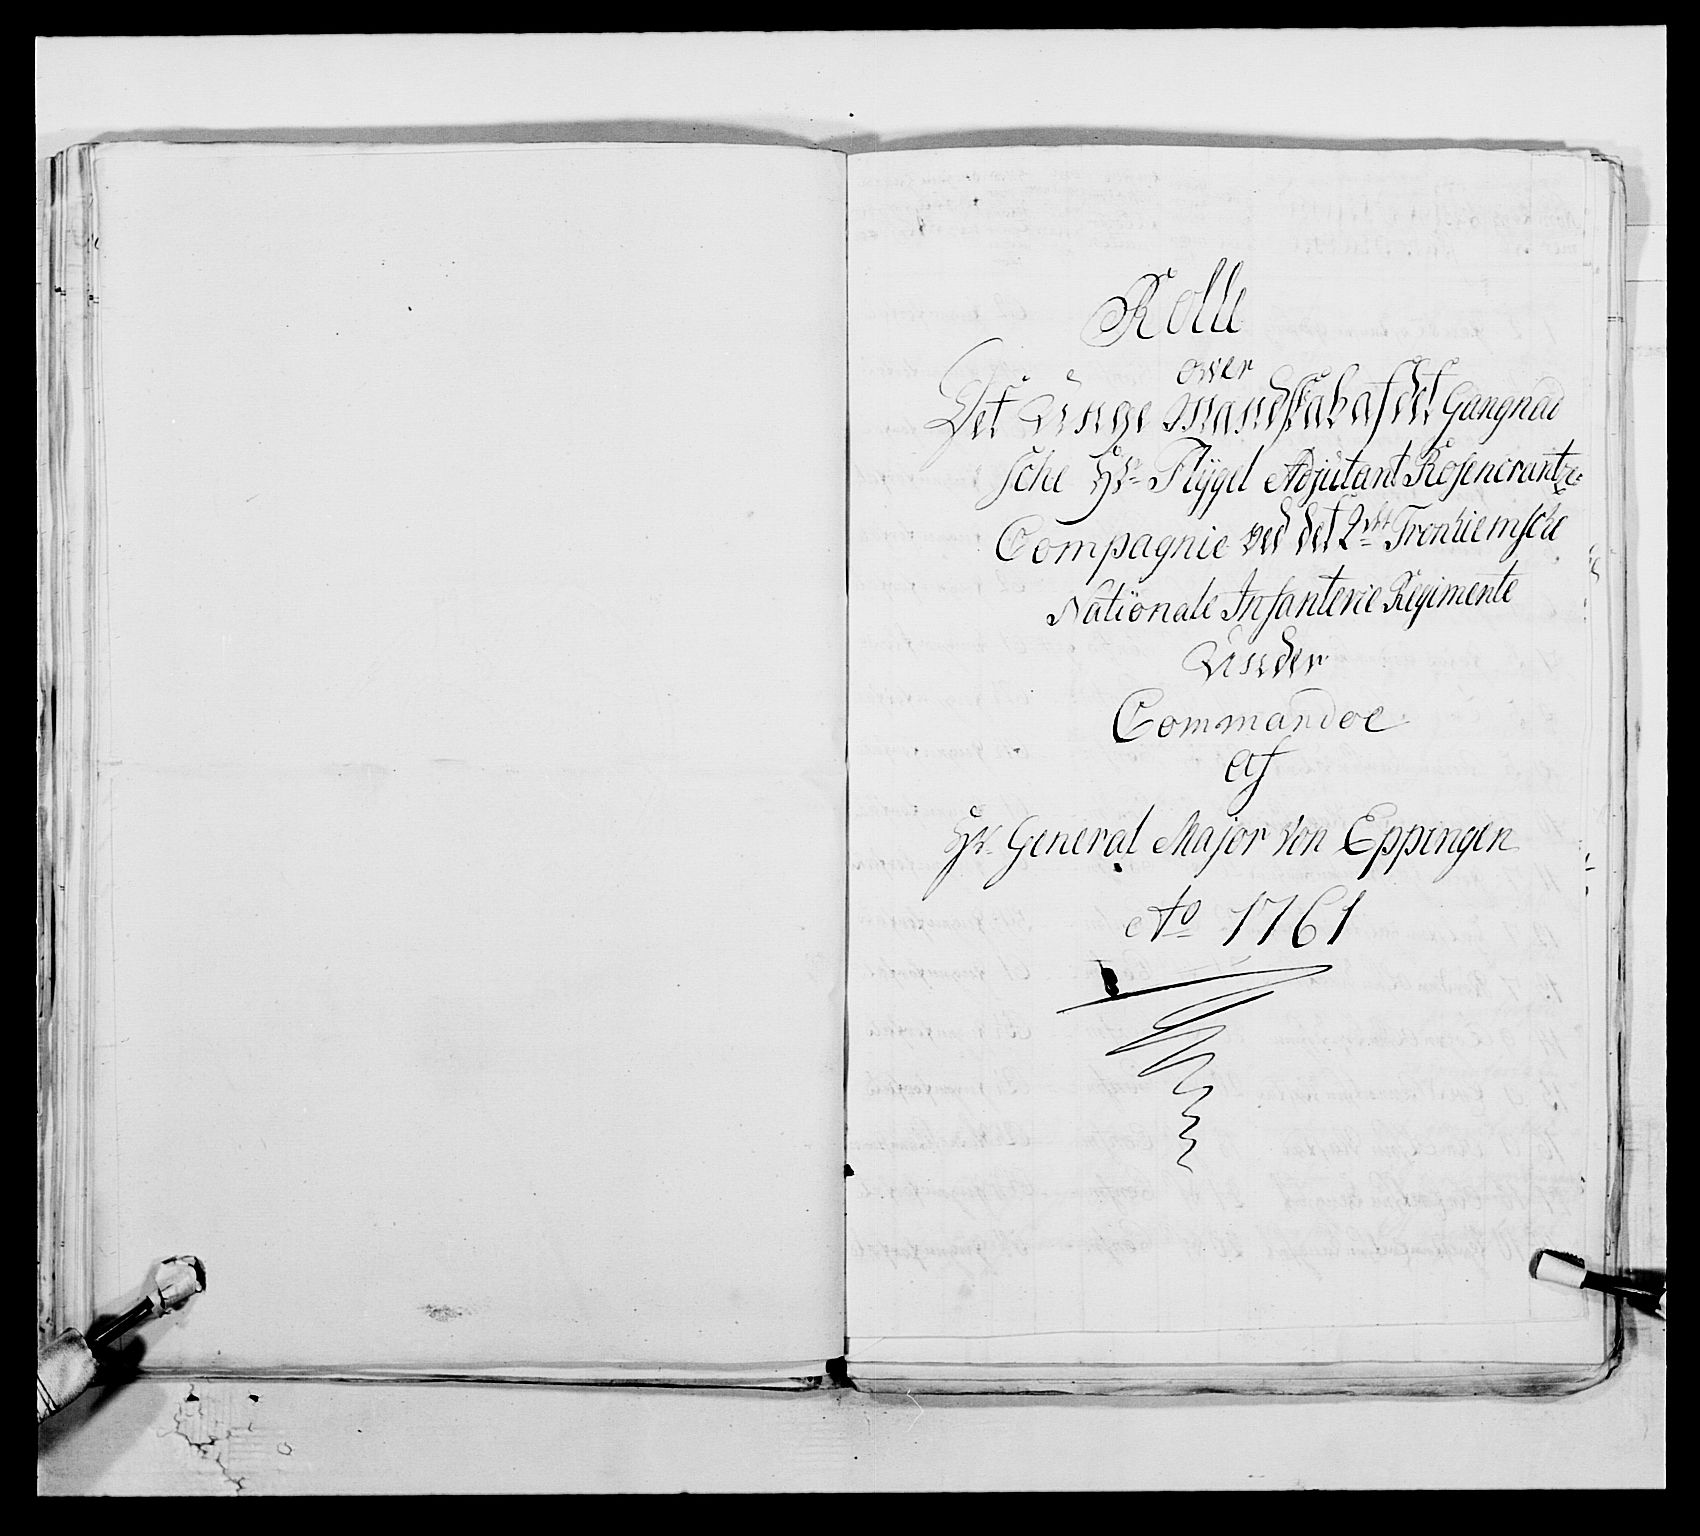 Rolle
over
Det Unge Mandskab af det Gangnad
sche Hr Flÿgel Adjutant Rosencrantz
Compagnie ved det 2det Tronhiemsche
Nationale Infanterie Regimente
Under
Commandoe
Af
Hr General Major Von Eppingen
Ao 1761